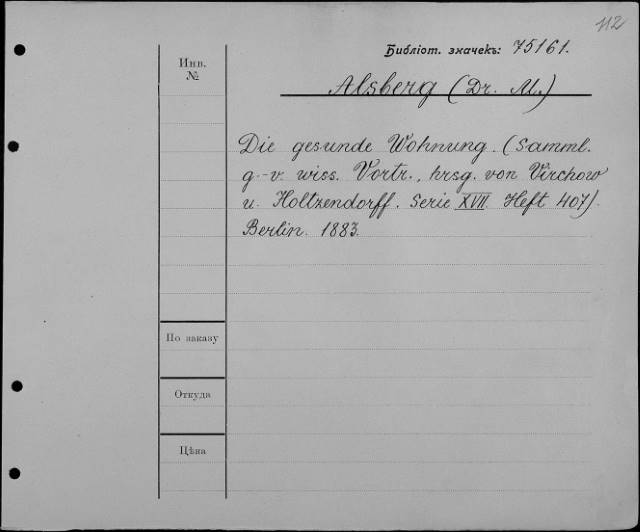 112
Библіот. значекъ: 75161.
Инв.
№
Alsberg (Dr. M.)
Die gesunde Wohnung. (Samml.
g.-v. wiss. Vortr., hrsg. von Virchow
u. Holtzendorff. Serie XVII. Heft 407).
Berlin. 1883.
По заказу
Откуда
Цѣна